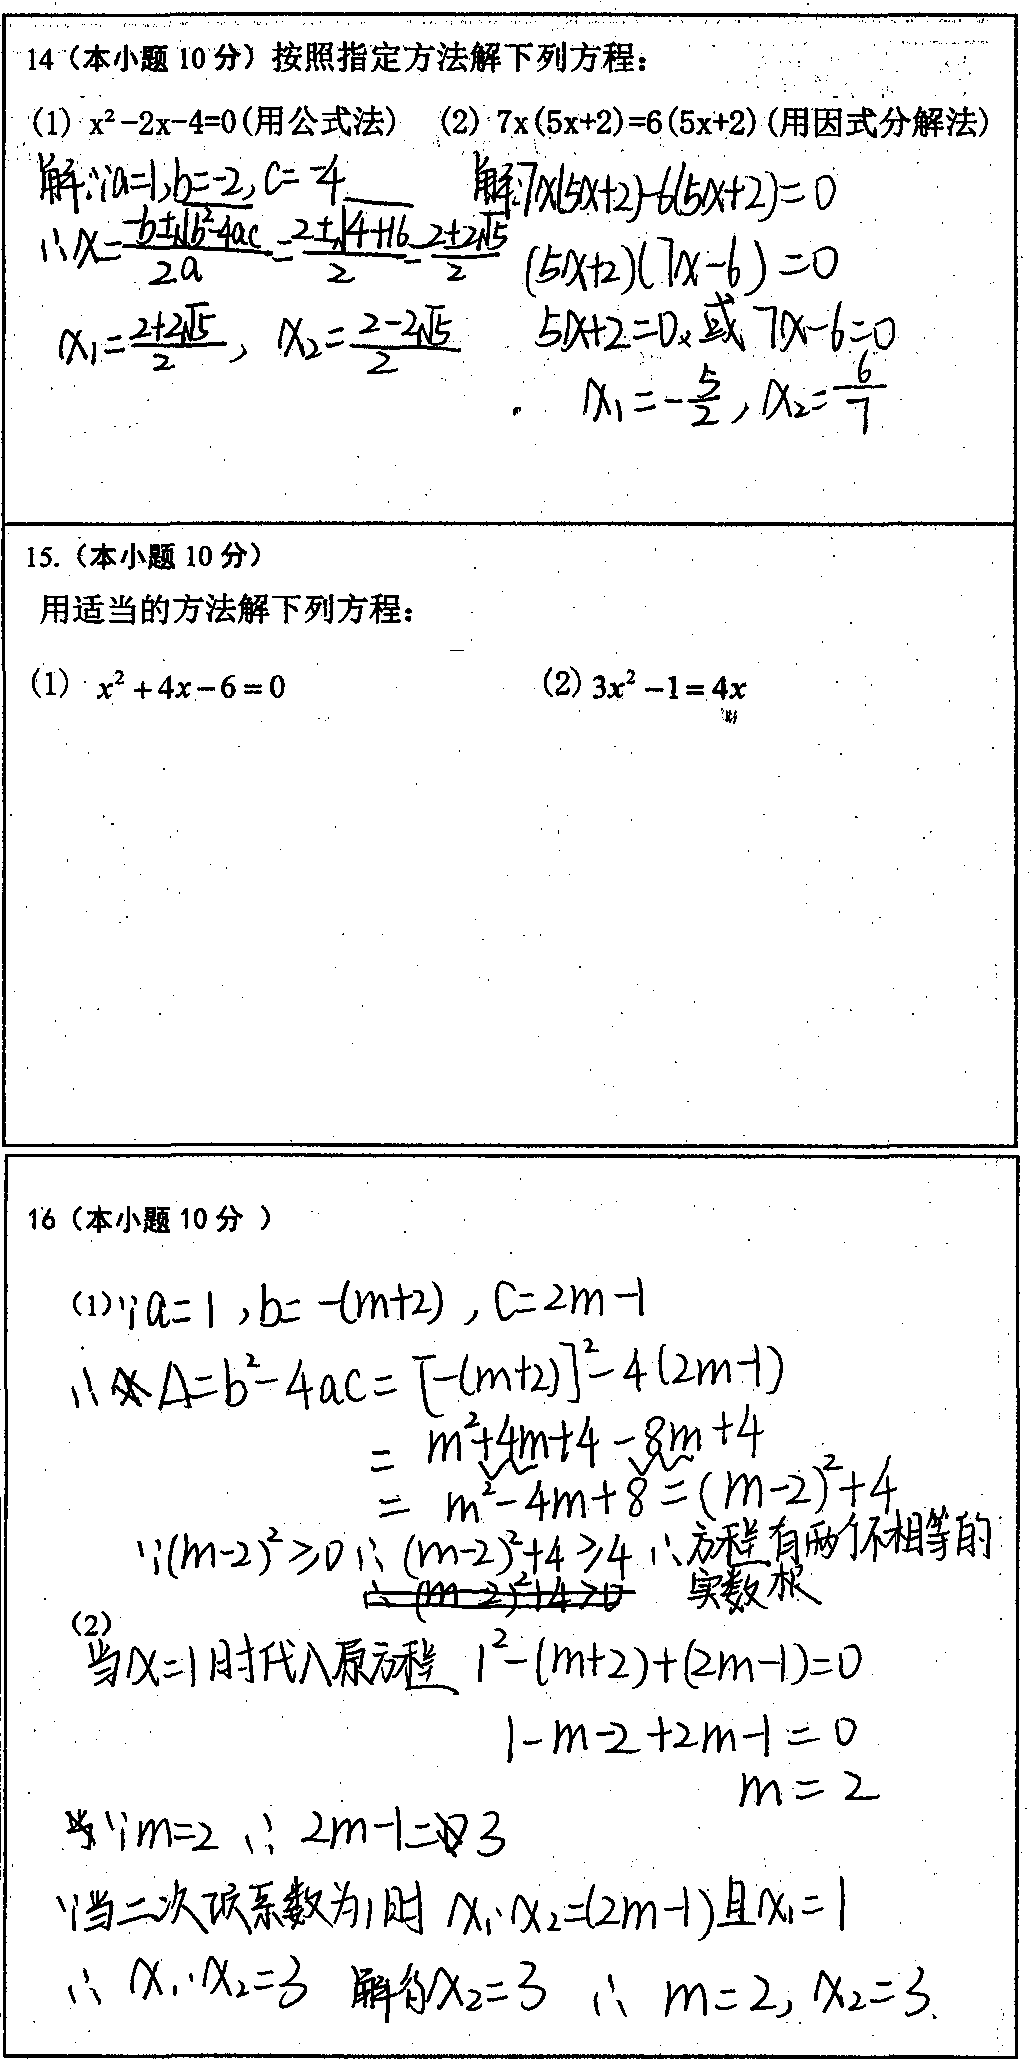 14（本小题 10 分）按照指定方法解下列方程：
(1) x²-2x-4=0(用公式法) (2) 7x(5x+2)=6(5x+2)(用因式分解法)
解:∵a=1,b=-2,c=-4
∴x=\frac{-b±√(b²-4ac)}{2a}=\frac{2±√(4+16)}{2}=\frac{2±2√5}{2}
x₁=\frac{2+2√5}{2}, x₂=\frac{2-2√5}{2}
解:7x(5x+2)-6(5x+2)=0
(5x+2)(7x-6)=0
5x+2=0,或 7x-6=0
x₁=-\frac{5}{2}, x₂=\frac{6}{7}
15.（本小题 10 分）
用适当的方法解下列方程：
(1) x²+4x-6=0 (2) 3x²-1=4x
16（本小题 10 分 ）
(1)∵a=1,b=-(m+2),c=2m-1
∴Δ=b²-4ac=[-(m+2)]²-4(2m-1)
= m²+4m+4-8m+4
= m²-4m+8=(m-2)²+4
∵(m-2)²≥0∴(m-2)²+4≥4∴方程有两个不相等的
∴(m-2)²+4>0 实数根
(2)
当x=1时代入原方程 1²-(m+2)+(2m-1)=0
1-m-2+2m-1=0
m=2
∵m=2 ∴ 2m-1=3
∵当二次项系数为1时 x₁·x₂=(2m-1)且x₁=1
∴ x₁·x₂=3 解得x₂=3 ∴ m=2, x₂=3.